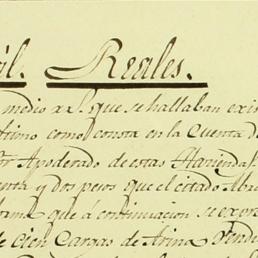 il. Reales.
medio rl. que se hallaban exis
ltimo como consta en la Cuenta d
or Apoderado de estas Haciendas
enta y dos pesos que el citado Aba
forma que á continuacion se expre
de Cien Cargas de Arina Vende